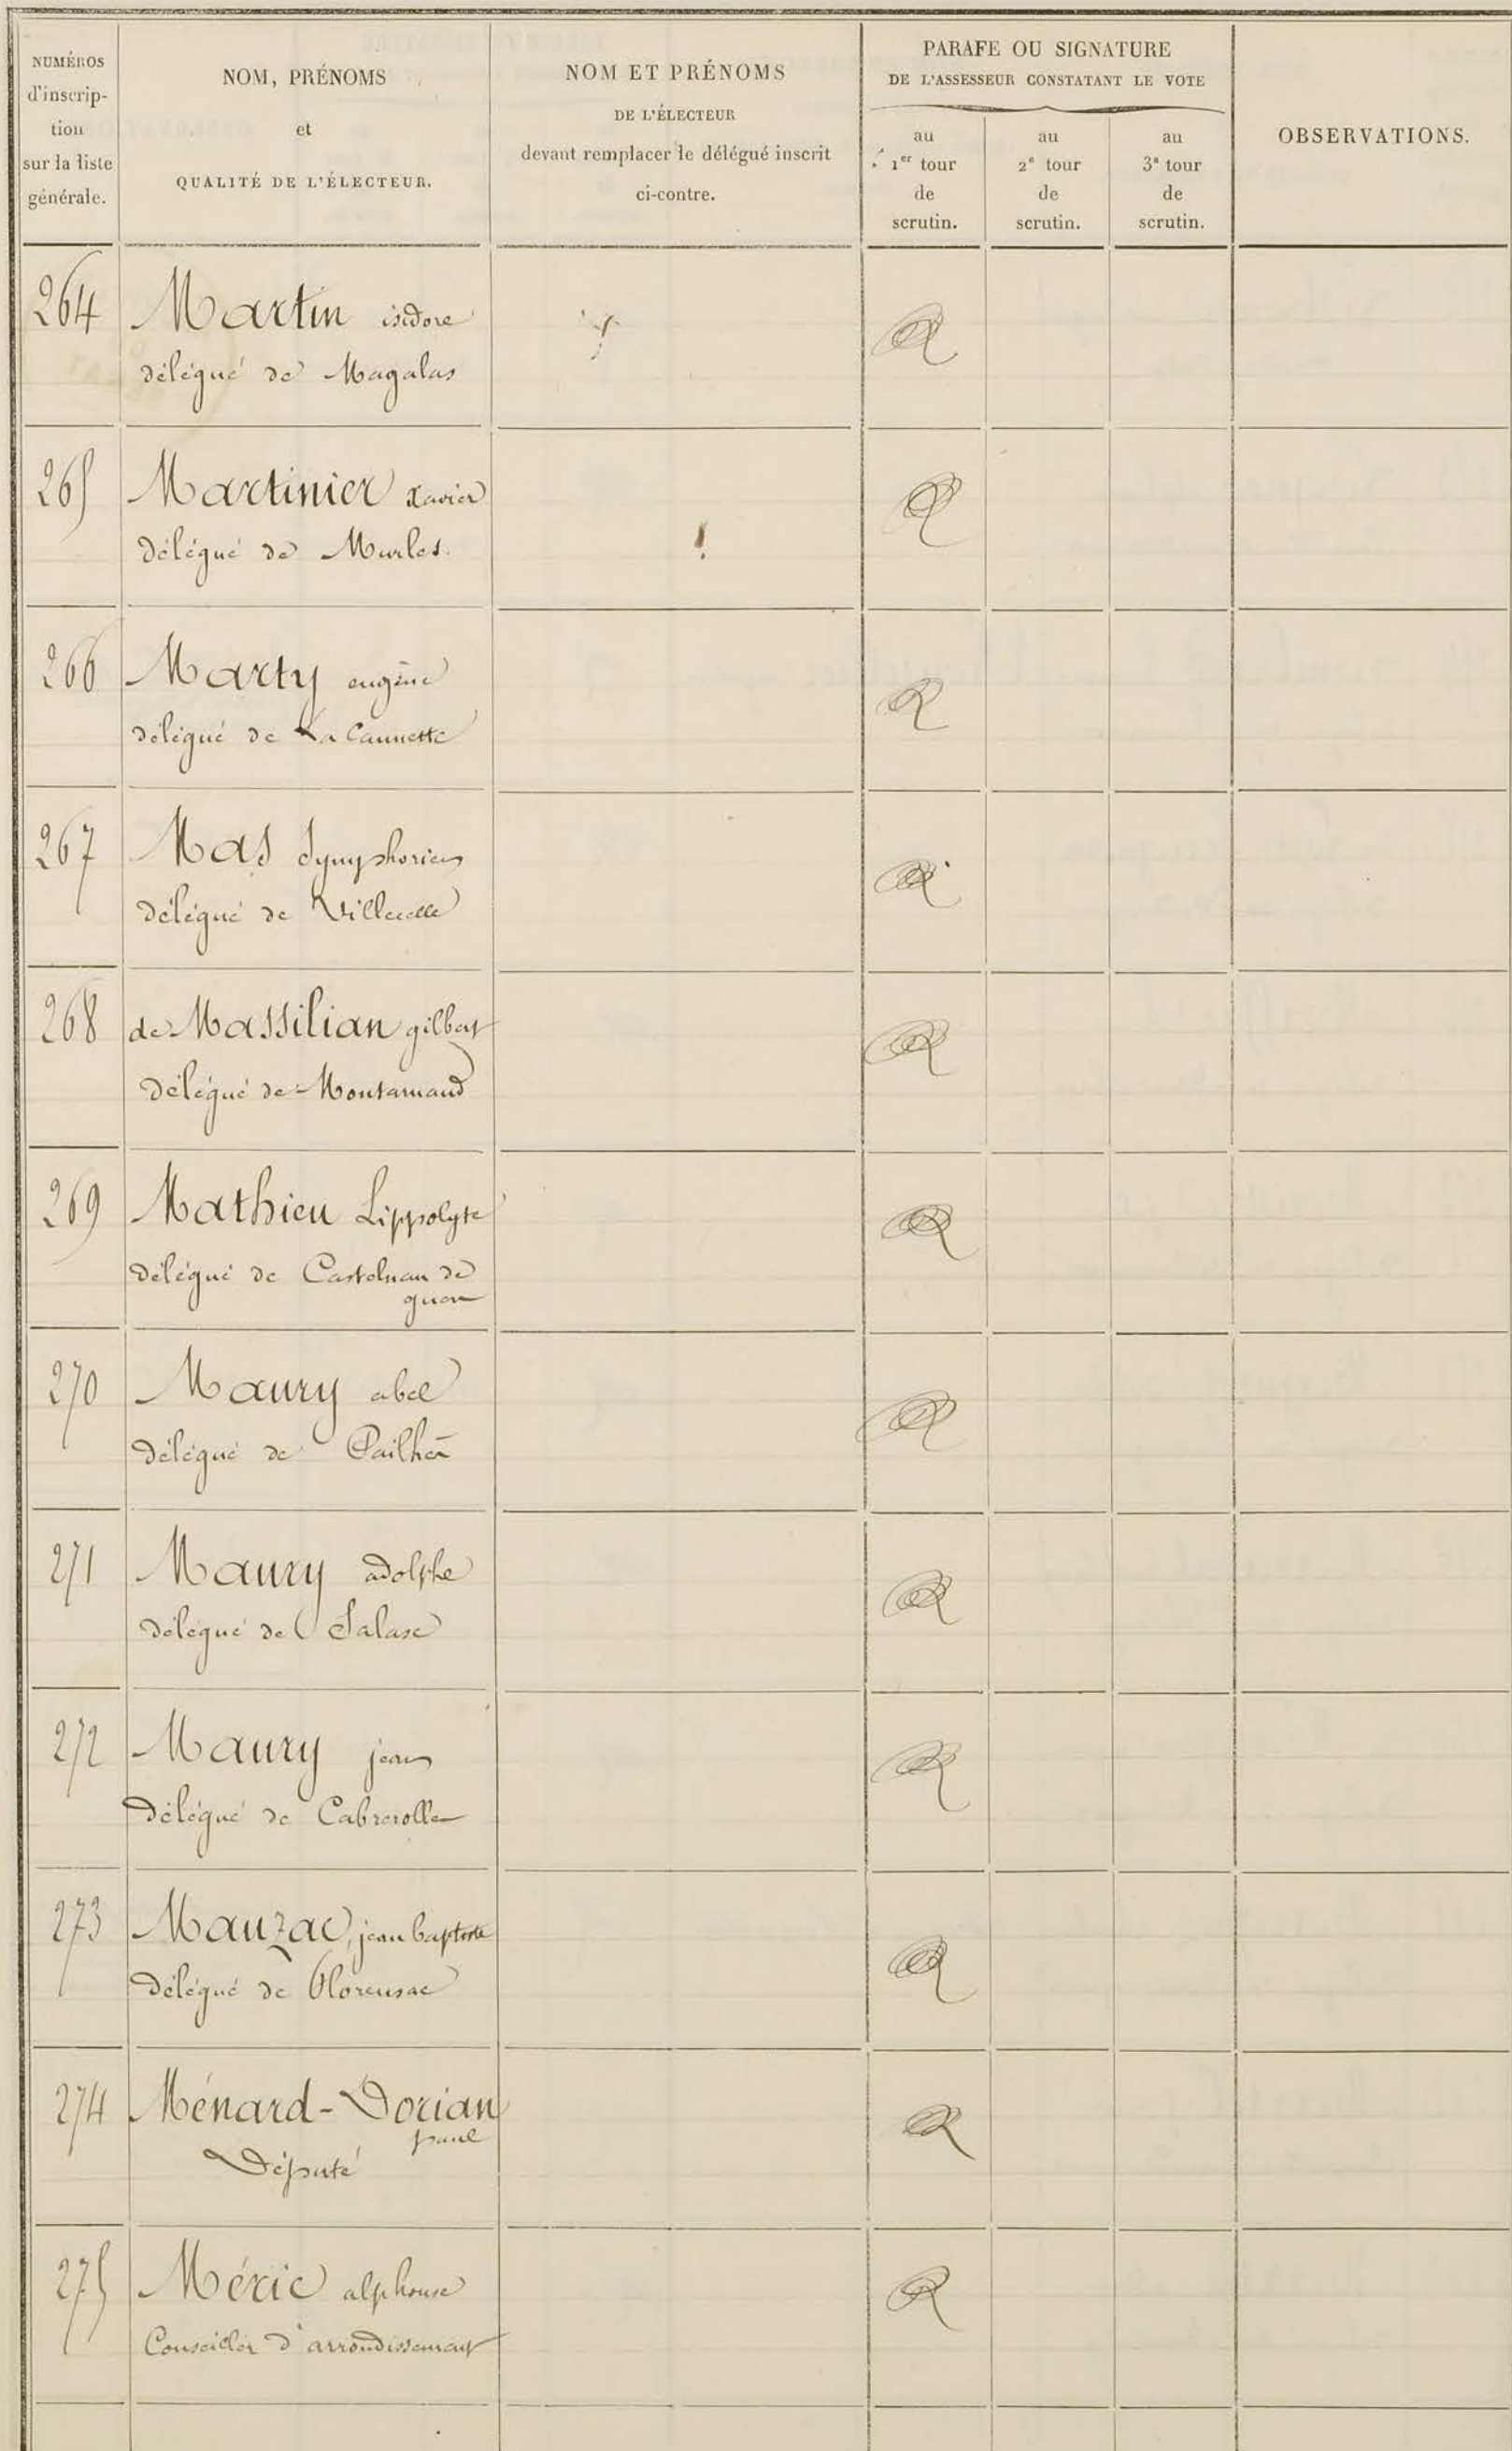 NUMÉROS
d'inscrip-
tion
sur la liste
générale.
NOM, PRÉNOMS
et
QUALITÉ DE L'ÉLECTEUR.
NOM ET PRÉNOMS
DE L'ÉLECTEUR
devant remplacer le délégué inscrit
ci-contre.
PARAFE OU SIGNATURE
DE L'ASSESSEUR CONSTATANT LE VOTE
au
1er tour
de
scrutin.
au
2e tour
de
scrutin.
au
3e tour
de
scrutin.
OBSERVATIONS.
264 Martin isidore
délégué de Magalas
265 Martinier xavier
délégué de Murles.
266 Marty eugène
délégué de La Caunette
267 Mas Symphorien
délégué de
268 de Massilian gilbert
délégué de Montarnaud
269 Mathieu hippolyte
délégué de Castelnau de
guers
270 Maury abel
délégué de Pailhès
271 Maury adolphe
délégué de Salasc
272 Maury jean
délégué de Cabrerolles
273 Mauzac, jean baptiste
délégué de Florensac
274 Ménard-Dorian
paul
Député
275 Méric alphonse
Conseiller d'arrondissement